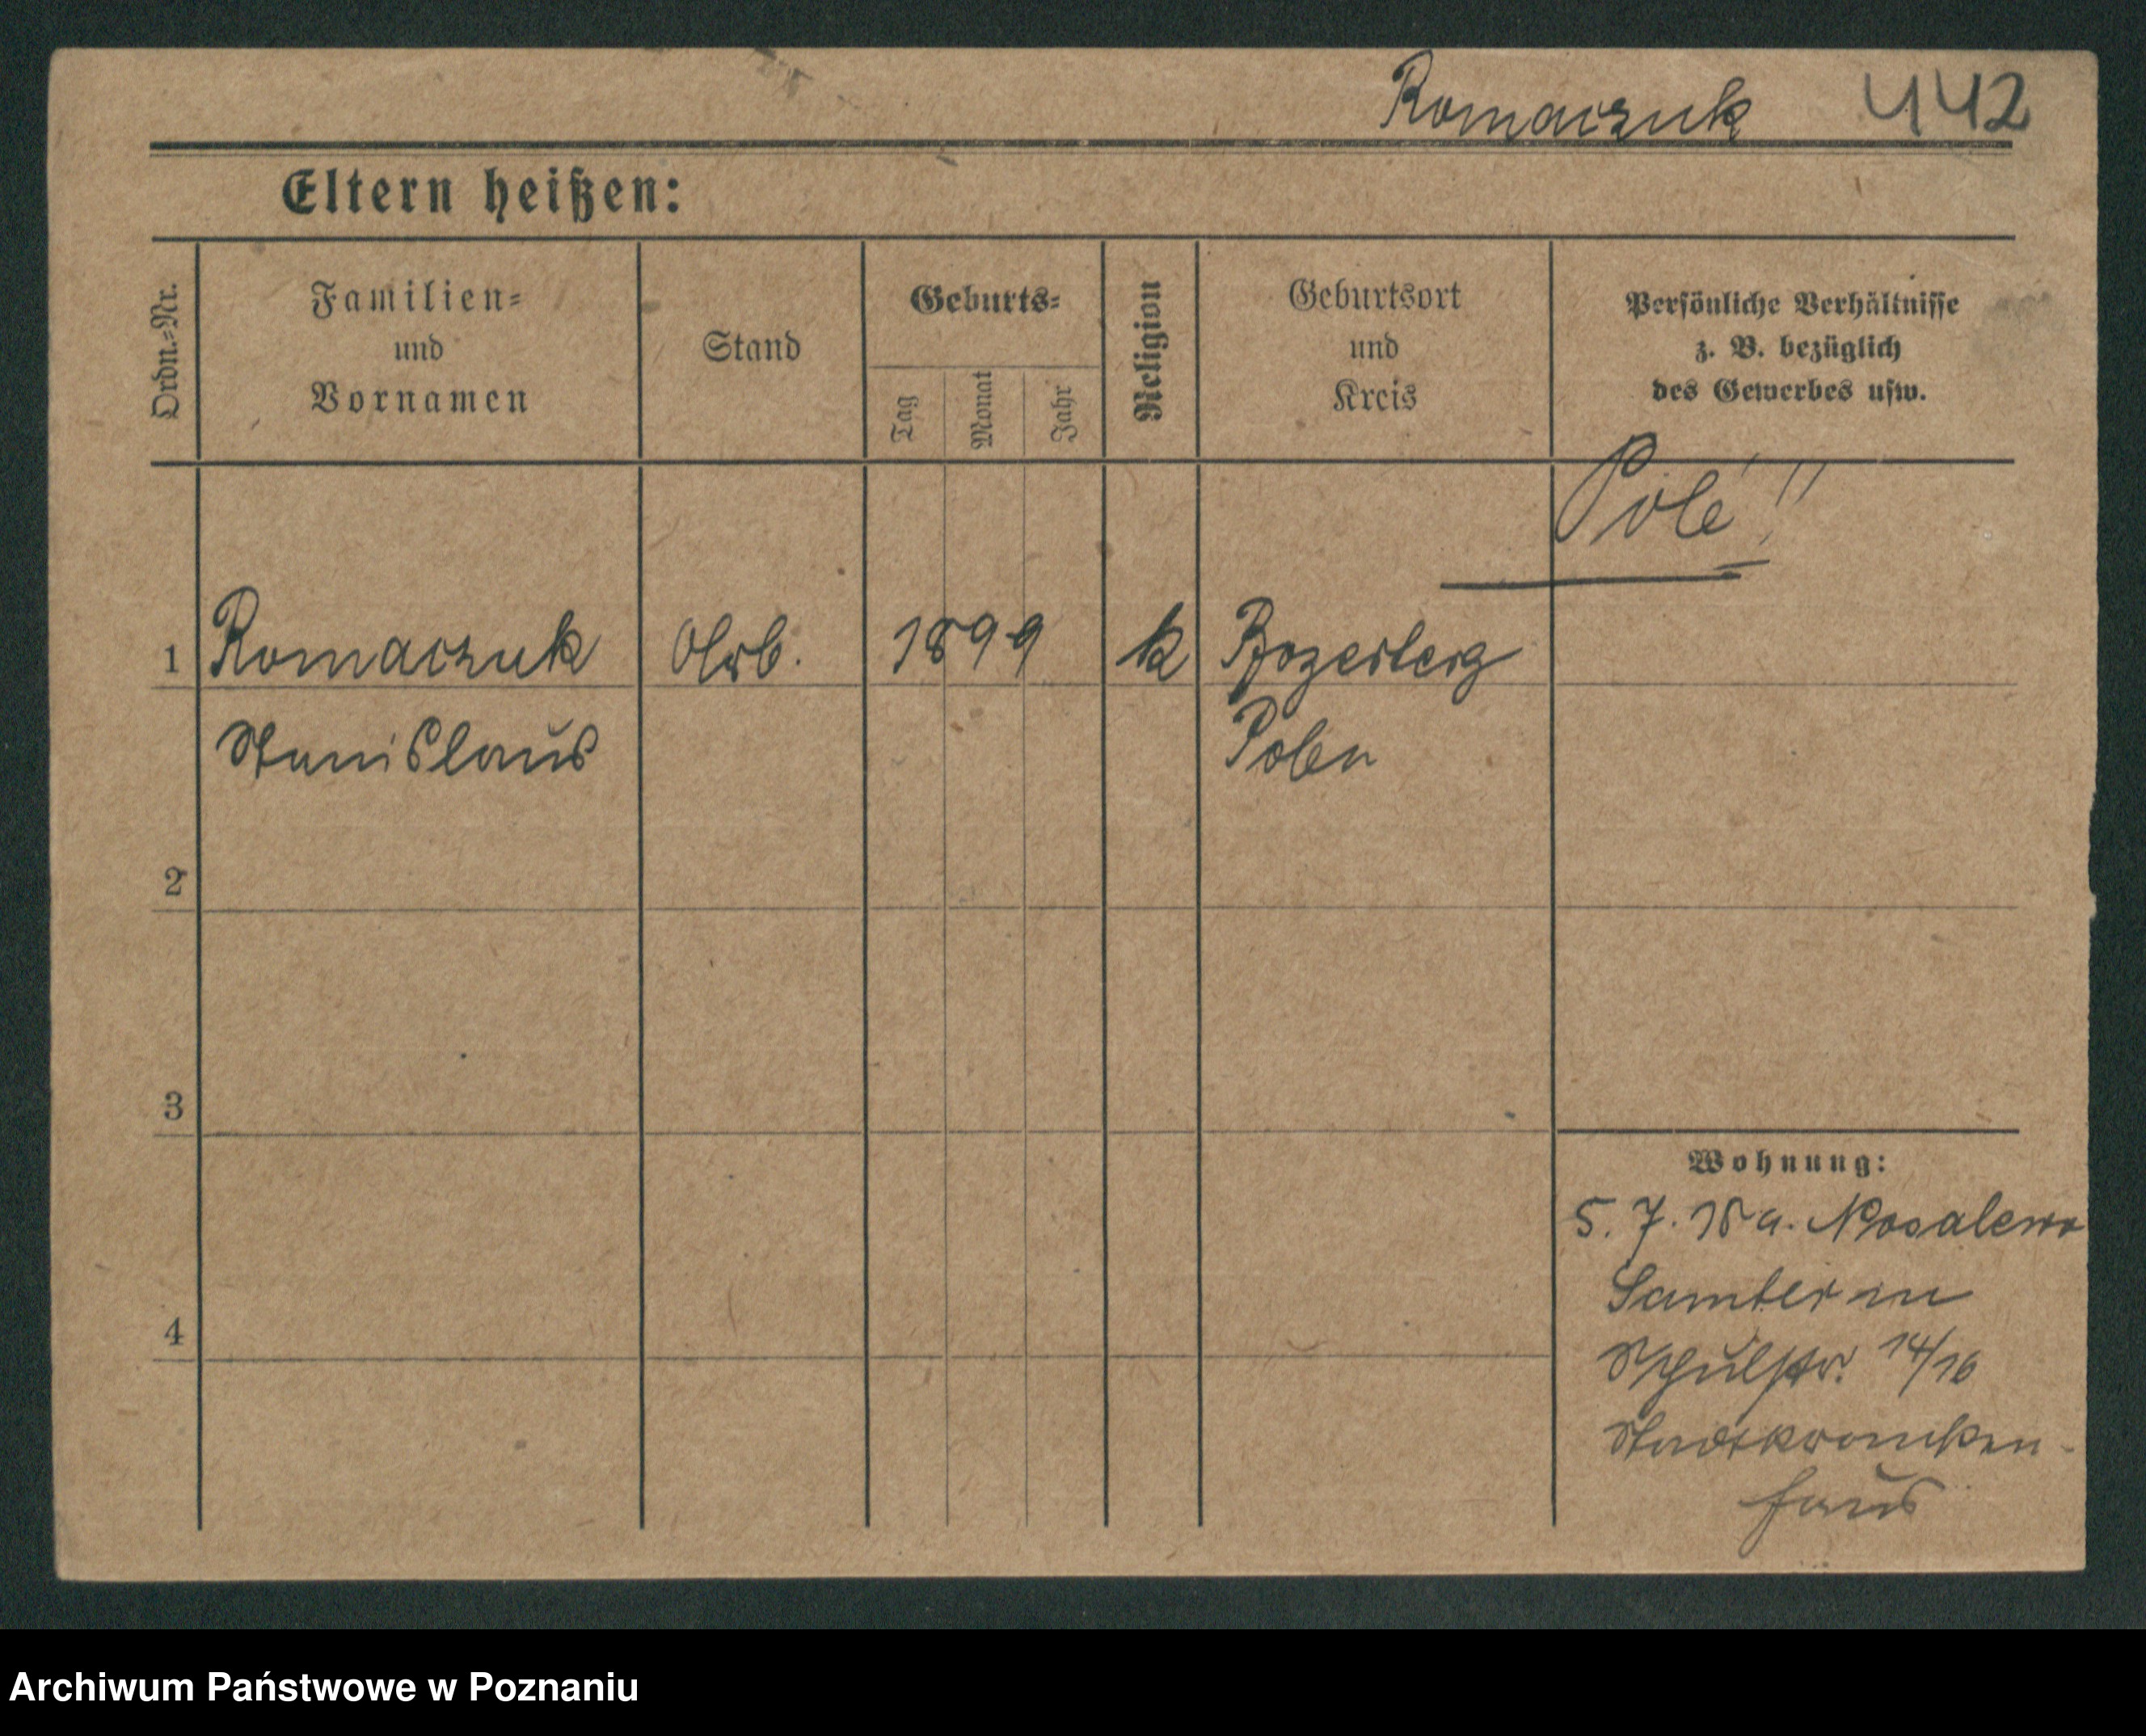 Romaiczuk 442
Eltern heißen:
Ordn.-Nr.
Familien-
und
Vornamen
Stand
Geburts-
Tag
Monat
Jahr
Religion
Geburtsort
und
Kreis
Persönliche Verhältnisse
z. B. bezüglich
des Gewerbes usw.
Pole!!
1 Romaiczuk Arb. 1899 k
Stanislaus Polen
2
3
4
Wohnung:
5. 7. 18 a.
Samter in
Schulstr. 14/16
Stadtkranken-
haus
Archiwum Państwowe w Poznaniu